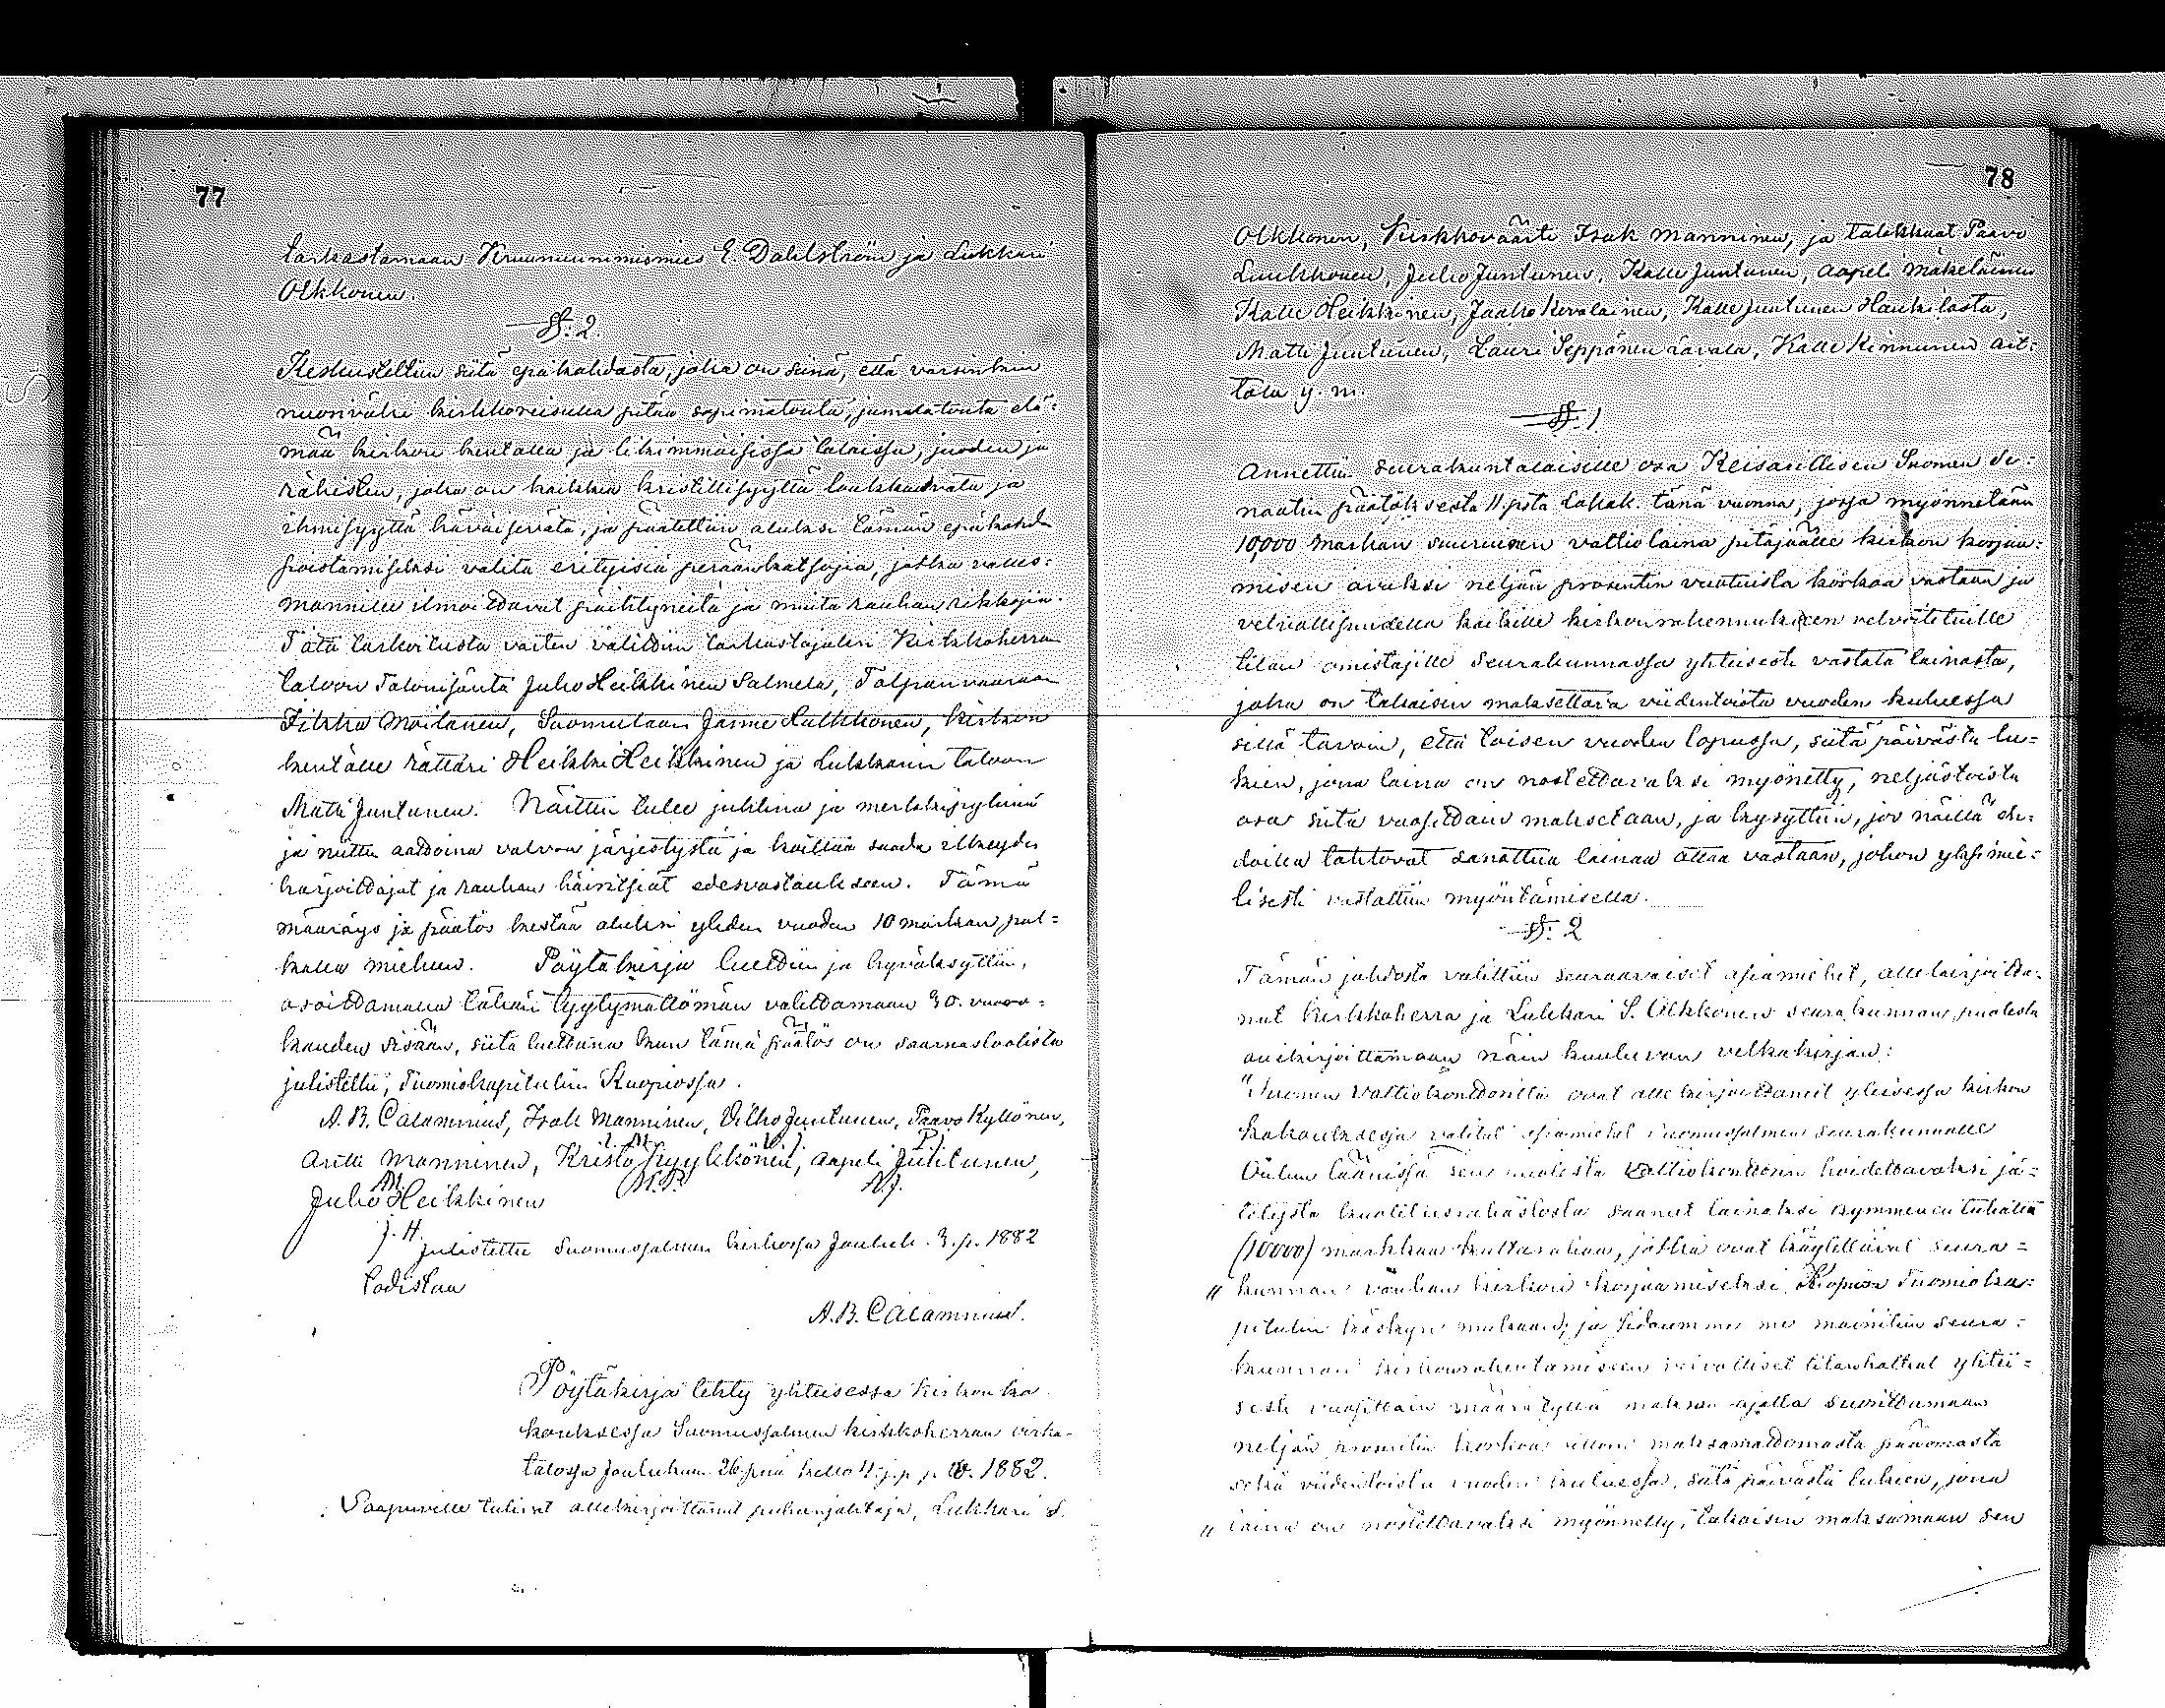 77
tarkastamaan Kruununnimismies E. Dahlström ja Lukkari
Olkkonen.
§. 2.
Keskusteltiin siitä epäkohdasta, joka on siinä, että varsinkin
nuoriväki kirkkoreisulla pitää sopimatonta, jumalatonta elä-
mää kirkon kentällä ja likimmäisissä taloissa, juoden ja
rähisten, joka on kaikkea kristillisyyttä loukkaavata ja
ihmisyyttä häväisevätä, ja päätettiin aluksi tämän epäkohda
poistamiseksi valita erityisiä peräänkatsojia, jotka valles-
mannille ilmoittavat päihtyneitä ja muita rauhan rikkojia.
Tätä tarkoitusta varten valittiin tarkastajaksi Kirkkoherran
taloon Talonisäntä Juho Heikkinen Salmela, Talpanvaaraan
Iikka Moilanen, Suomulaan Janne Kulkkonen, kirkon
kentälle Rättäri Heikki Heikkinen ja Lukkarin taloon
Matti Juntunen. Näitten tulee juhlina ja merkkipyhinä
ja niitten aattoina valvoa järjestystä ja koittaa saada ilkeyden
harjoittajat ja rauhan häiritsiät edesvastaukseen. Tämä
määräys ja päätös kestää aluksi yhden vuoden 10 markan pal-
kalla mieheen. Pöytäkirja luettiin ja hyväksyttiin,
osoittamalla tähän tyytymättömän valittamaan 30. vuoro-
kauden sisään, siitä luettuna kun tämä päätös on saarnastuolista
julistettu, Tuomiokapituliin Kuopiossa.
A. B. Calamnius, Isak Manninen, Vilho Juntunen, Paavo Kyllönen,
Antti Manninen, Kristo Kyyhkönen, Aapeli Juntunen,
Juho Heikkinen
J. H.
Julistettu Suomussalmen kirkossa Jouluk. 3. p. 1882
todistaa
A. B. Calamnius.
Pöytäkirja tehty yhteisessä kirkonko-
kouksessa Suomussalmen kirkkoherran virka-
talossa Joulukuun 26 pnä kello 4 j.p.p. 1882.
Saapuville tulivat allekirjoittanut puheenjohtaja, Lukkari S.
78
Olkkonen, Kirkkoväärti Isak Manninen, ja talokkaat Paavo
Luukkonen, Juho Juntunen, Kalle Juntunen, Aapeli Mäkeläinen
Kalle Heikkinen, Jaakko Kovalainen, Kalle Juntunen Haukilasta,
Matti Juntunen, Lauri Seppänen Lavala, Kalle Kinnunen Ait-
tola y. m.
§. 1
Annettiin seurakuntalaisille osa Keisarillisen Suomen Se-
naatin päätöksestä 11 pstä Lokak. tänä vuonna, jossa myönnetään
10,000 markan suuruinen valtiolaina pitäjäälle kirkon korjaa-
misen avuksi neljän prosentin vuotuista korkoa vastaan ja
velvollisuudella kaikille kirkonrakennukseen velvoitetuille
tilan omistajille seurakunnassa yhteisesti vastata lainasta,
joka on takaisin maksettava viidentoista vuoden kuluessa
sillä tavoin, että toisen vuoden lopussa, siitä päivästä lu-
kien, jona laina on nostettavaksi myönetty, neljästoista
osa siitä vuosittain maksetaan, ja kysyttiin, jos näillä eh-
doilla tahtovat sanottua lainaa ottaa vastaan, johon yksimie-
lisesti vastattiin myöntämisellä.
§. 2
Tämän johdosta valittiin seuraavaiset asiamiehet, allekirjoitta-
nut kirkkoherra ja Lukkari S. Olkkonen seurakunnan puolesta
allekirjoittamaan näin kuuluvan velkakirjan:
"Suomen Valtiokonttorilta ovat allekirjoittaneet yleisessä kirkon
kokouksessa valitut asiamiehet Suomussalmen seurakunnalle
Oulun läänissä sen puolesta Valtiokonttorin hoidettavaksi jä-
tetystä kuoletusrahastosta saaneet lainaksi kymmenen tuhatta
(10000) markkaa kultarahaa, jotka ovat käytettävät seura-
" kunnan vanhan kirkon korjaamiseksi Kuopion Tuomioka-
pitulin käskyn mukaan; ja sidomme me mainitun seura-
kunnan kirkonrakentamiseen velvolliset tilanhaltiat yhtei-
sesti vuosittain määrätyllä maksu ajalla suorittamaan
neljän prosentin korkoa silloin maksamattomasta pääomasta
sekä viidentoista vuoden kuluessa, siitä päivästä lukien, jona
" laina on nostettavaksi myönnetty, takaisin maksamaan sen